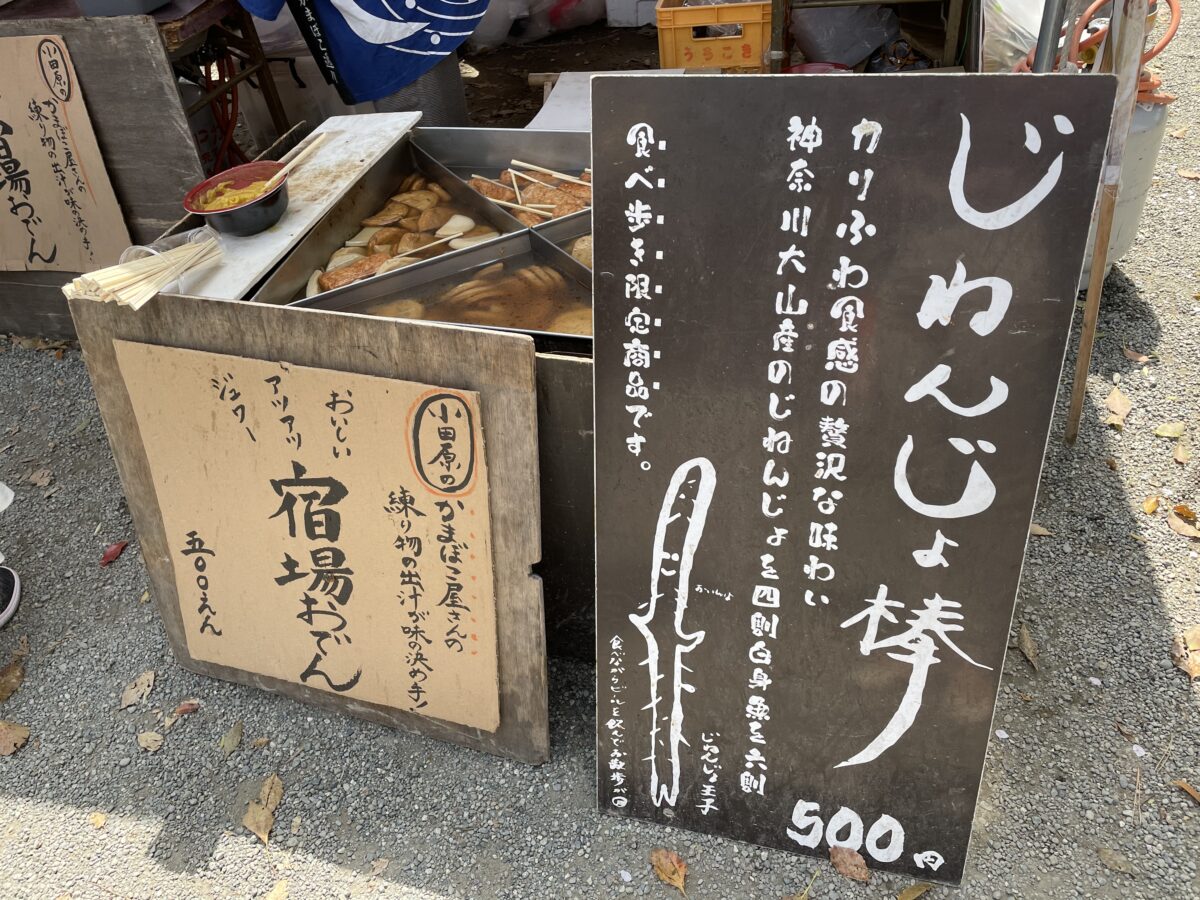 じねんじょ棒
カリふわ食感の贅沢な味わい
神奈川大山産のじねんじょを四割白身魚を六割
食べ歩き限定商品です。
じねんじょ王子
食べながらビールを飲んでお散歩が
500円
小田原の
かまぼこ屋さんの
練り物の出汁が味の決め手!
宿場おでん
おいしい
アツアツ
ジュワー
五〇〇えん
小田原の
かまぼこ屋さんの
練り物の出汁が味の決め手!
宿場おでん
かまぼこ通り